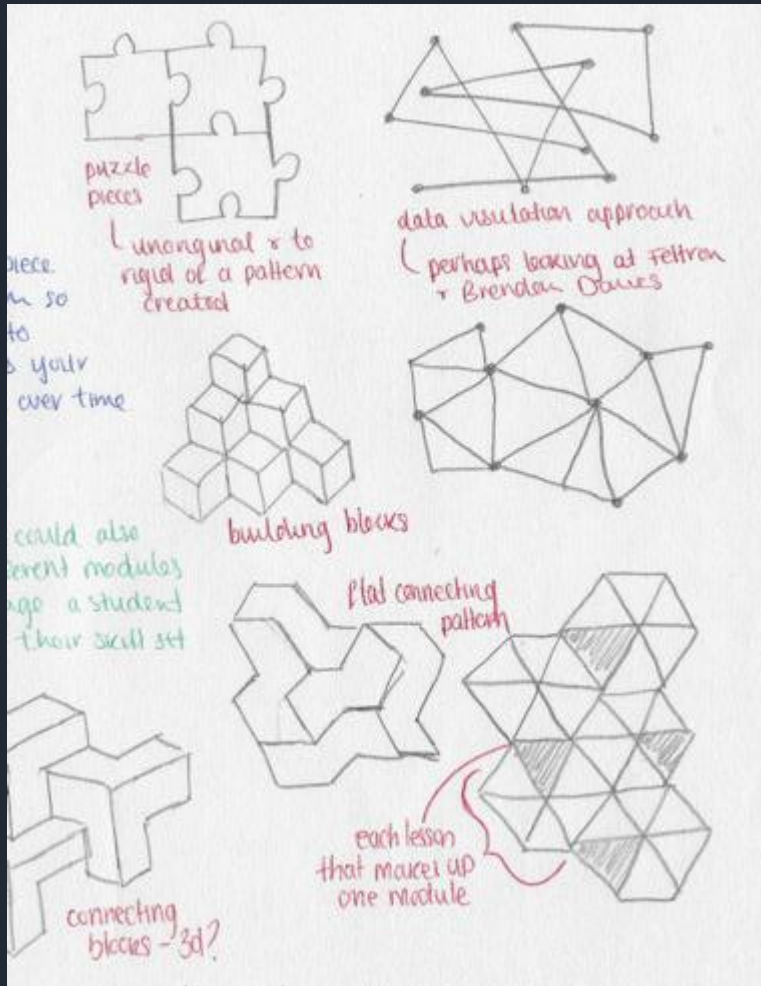 puzzle
pieces
unoriginal & to
rigid of a pattern
created
data visulation approach
perhaps looking at Feltron
& Brendan Dawes
piece
so
to
your
over time
building blocks
could also
erent modules
a student
their skill set
flat connecting
pattern
each lesson
that makes up
one module
connecting
blocks - 3d?